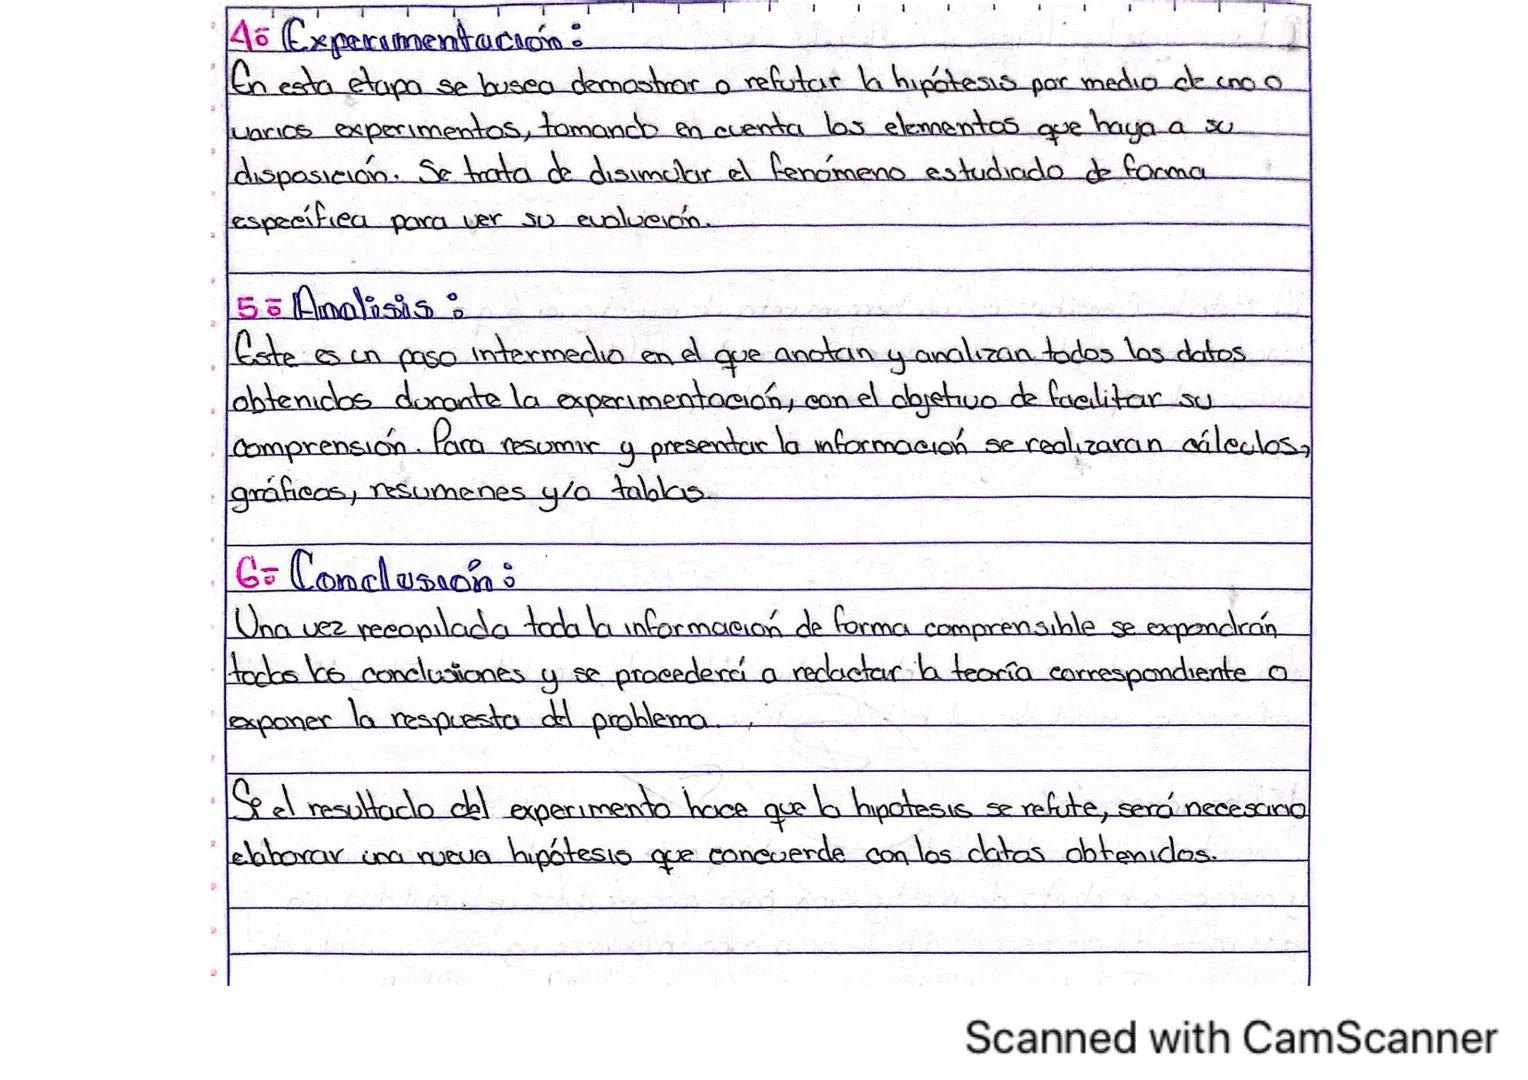 4º Experimentación:
En esta etapa se busca demostrar o refutar la hipótesis por medio de uno o
varios experimentos, tomando en cuenta los elementos que haya a su
disposición. Se trata de disimular el fenómeno estudiado de forma
específica para ver su evolución.
5º Analisis:
Este es un paso intermedio en el que anotan y analizan todos los datos
obtenidos durante la experimentación, con el objetivo de facilitar su
comprensión. Para resumir y presentar la información se realizaran cálculos,
gráficos, resumenes y/o tablas.
6º Conclusión:
Una vez recopilada toda la información de forma comprensible se expondrán
todas las conclusiones y se procederá a redactar la teoría correspondiente o
exponer la respuesta del problema.
Si el resultado del experimento hace que la hipotesis se refute, será necesario
elaborar una nueva hipótesis que concuerde con los datos obtenidos.
Scanned with CamScanner